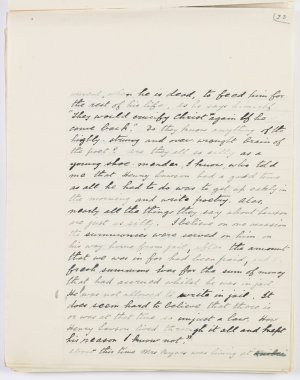 22
when he is dead, to feed him for
the rest of his life. As he says himself
"They would crucify Christ again if he
came back". Do they know anything of the
highly strung and over wrought brain of
the poet? as a
young shoe maker I know who told
me that Henry Lawson had a good time
as all he had to do was to get up early in
the morning and write poetry. Also,
nearly all the things they say about Lawson
are just as silly. I believe on one occasion
the summonses were served on him on
his way home from jail, after the amount
that we was in for had been paid,
fresh summons was for the sum of money
that had accrued whilst he was in jail
He was not allowed to write in jail. It
does seem hard to believe that there is
or was at that time so unjust a law. How
Henry Lawson lived through it all and kept
his reason I know not."
this time Mrs Byers was living at